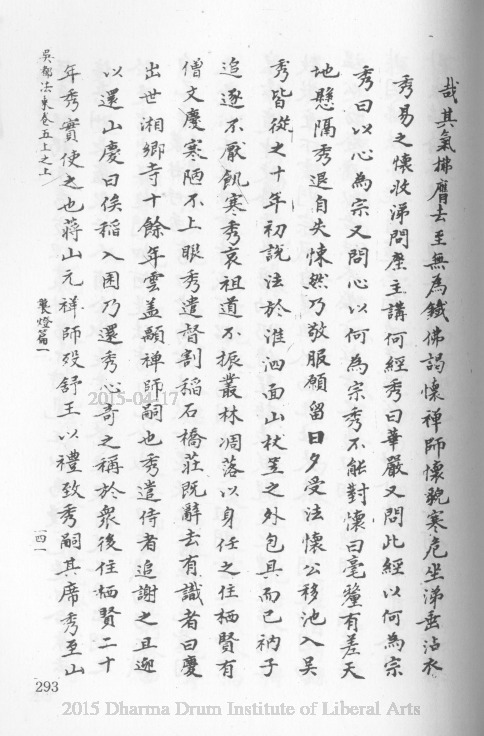 哉其氣拂膺去至無為鐵佛謁懷禪師懷貌寒危坐涕垂沾衣
秀易之懷收涕問座主講何經秀曰華嚴又問此經以何為宗
秀曰以心為宗又問心以何為宗秀不能對懷曰毫釐有差天
地懸隔秀退自失悚然乃敬服願留日夕受法懷公移池入吳
秀皆從之十年初說法於淮泗面山杖笠之外包具而已衲子
追逐不厭飢寒秀哀祖道不振叢林凋落以身任之住栖賢有
僧文慶寒陋不上眼秀遣督割稻石橋莊既辭去有識者曰慶
出世湘鄉寺十餘年雲盖顒禪師嗣也秀遣侍者追謝之且迎
以還山慶曰俟稻入囷乃還秀心奇之稱於衆後住栖賢二十
年秀實使之也蔣山元禅師歿舒王以禮致秀嗣其席秀至山
吳都法乘卷五上之上
襲燈篇一
一四一
293
2015-04-17
2015 Dharma Drum Institute of Liberal Arts